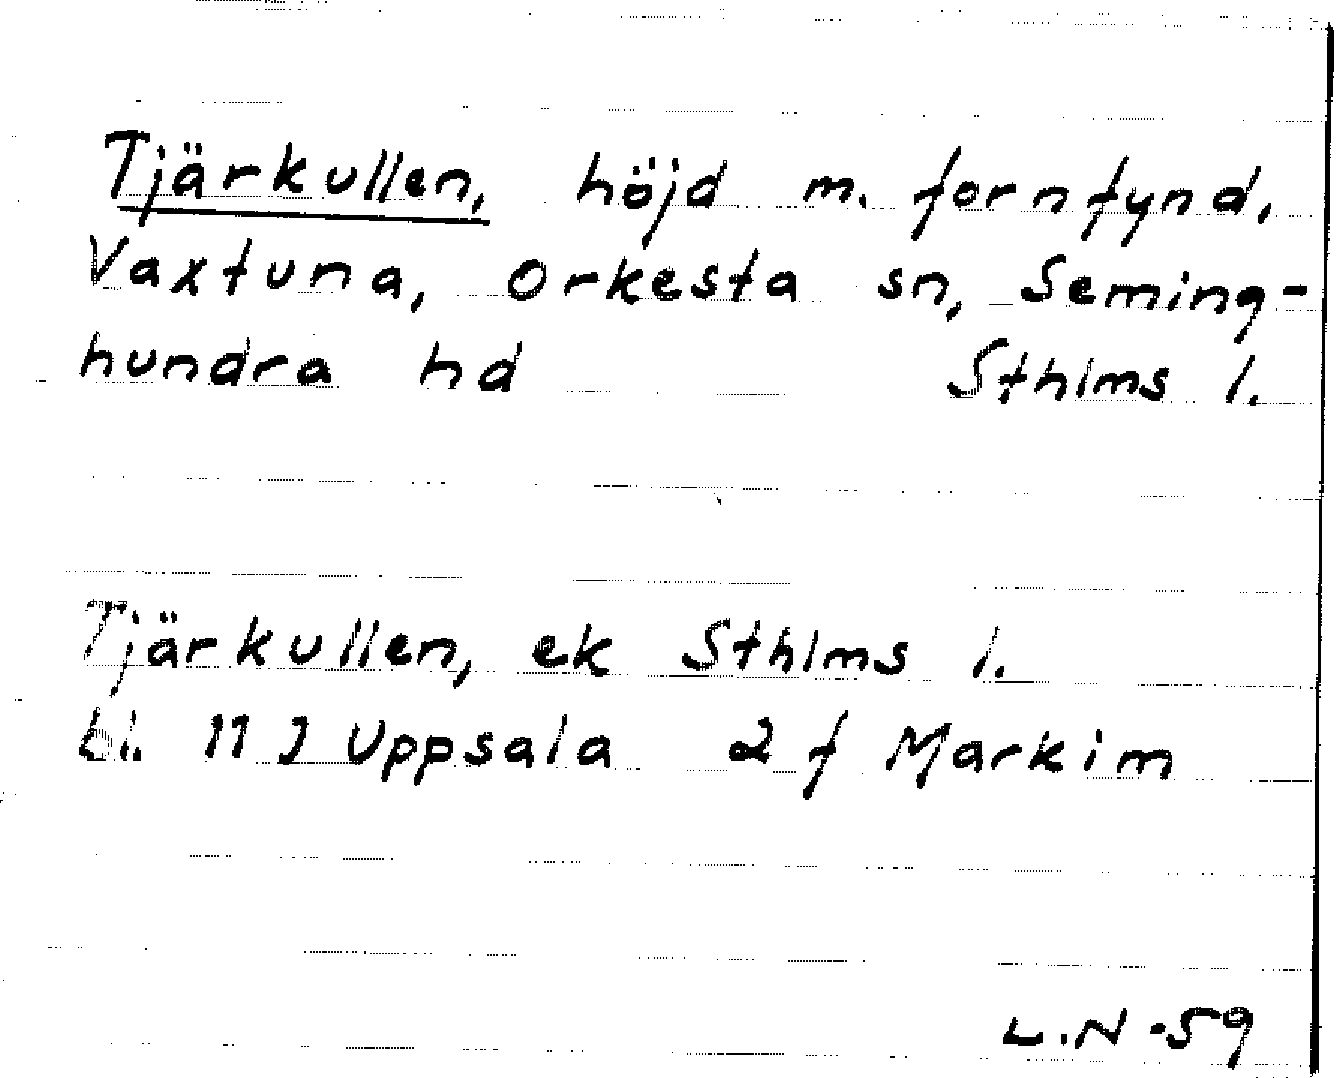 Tjärkullen, höjd m. fornfynd,
Vaxtuna, Orkesta sn, Seming-
hundra hd Sthlms l.
Tjärkullen, ek Sthlms l.
bl. 11 I Uppsala 2 f Markim
L.N -59